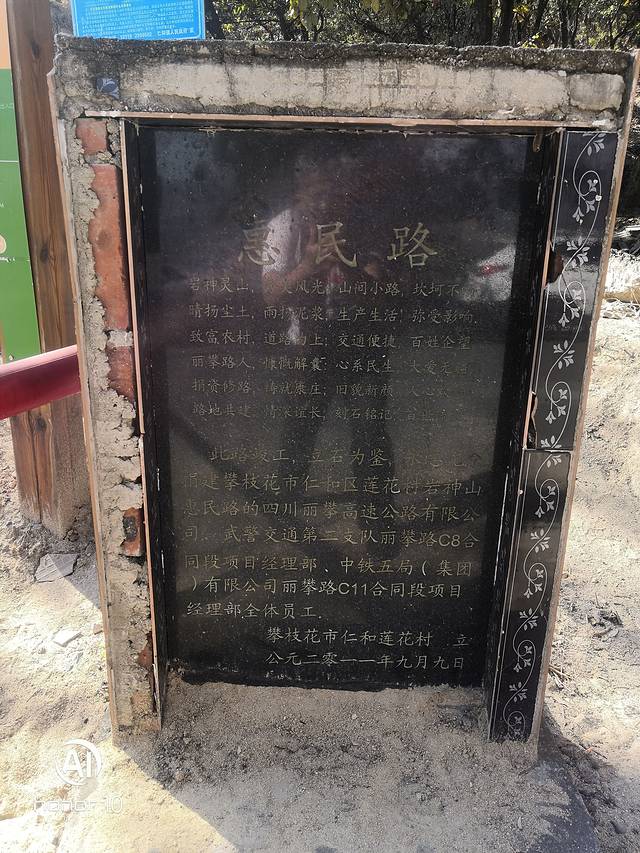 仁和镇人民政府 宣
惠民路
岩神灵山，风光；山间小路，坎坷不
晴扬尘土，雨扬泥浆；生产生活，弥受影响。
致富农村，道路为上；交通便捷，百姓企望
丽攀路人，慷慨解囊；心系民生，大爱无疆
捐资修路，铸就康庄；旧貌新颜，人心
路地共建，情深谊长，刻石铭记，百
此路竣工，立石为鉴，
捐建攀枝花市仁和区莲花村岩神山
惠民路的四川丽攀高速公路有限公
司、武警交通第二支队丽攀路C8合
同段项目经理部、中铁五局（集团
）有限公司丽攀路C11合同段项目
经理部全体员工。
攀枝花市仁和莲花村 立
公元二零一一年九月九日
AI
HONOR 10